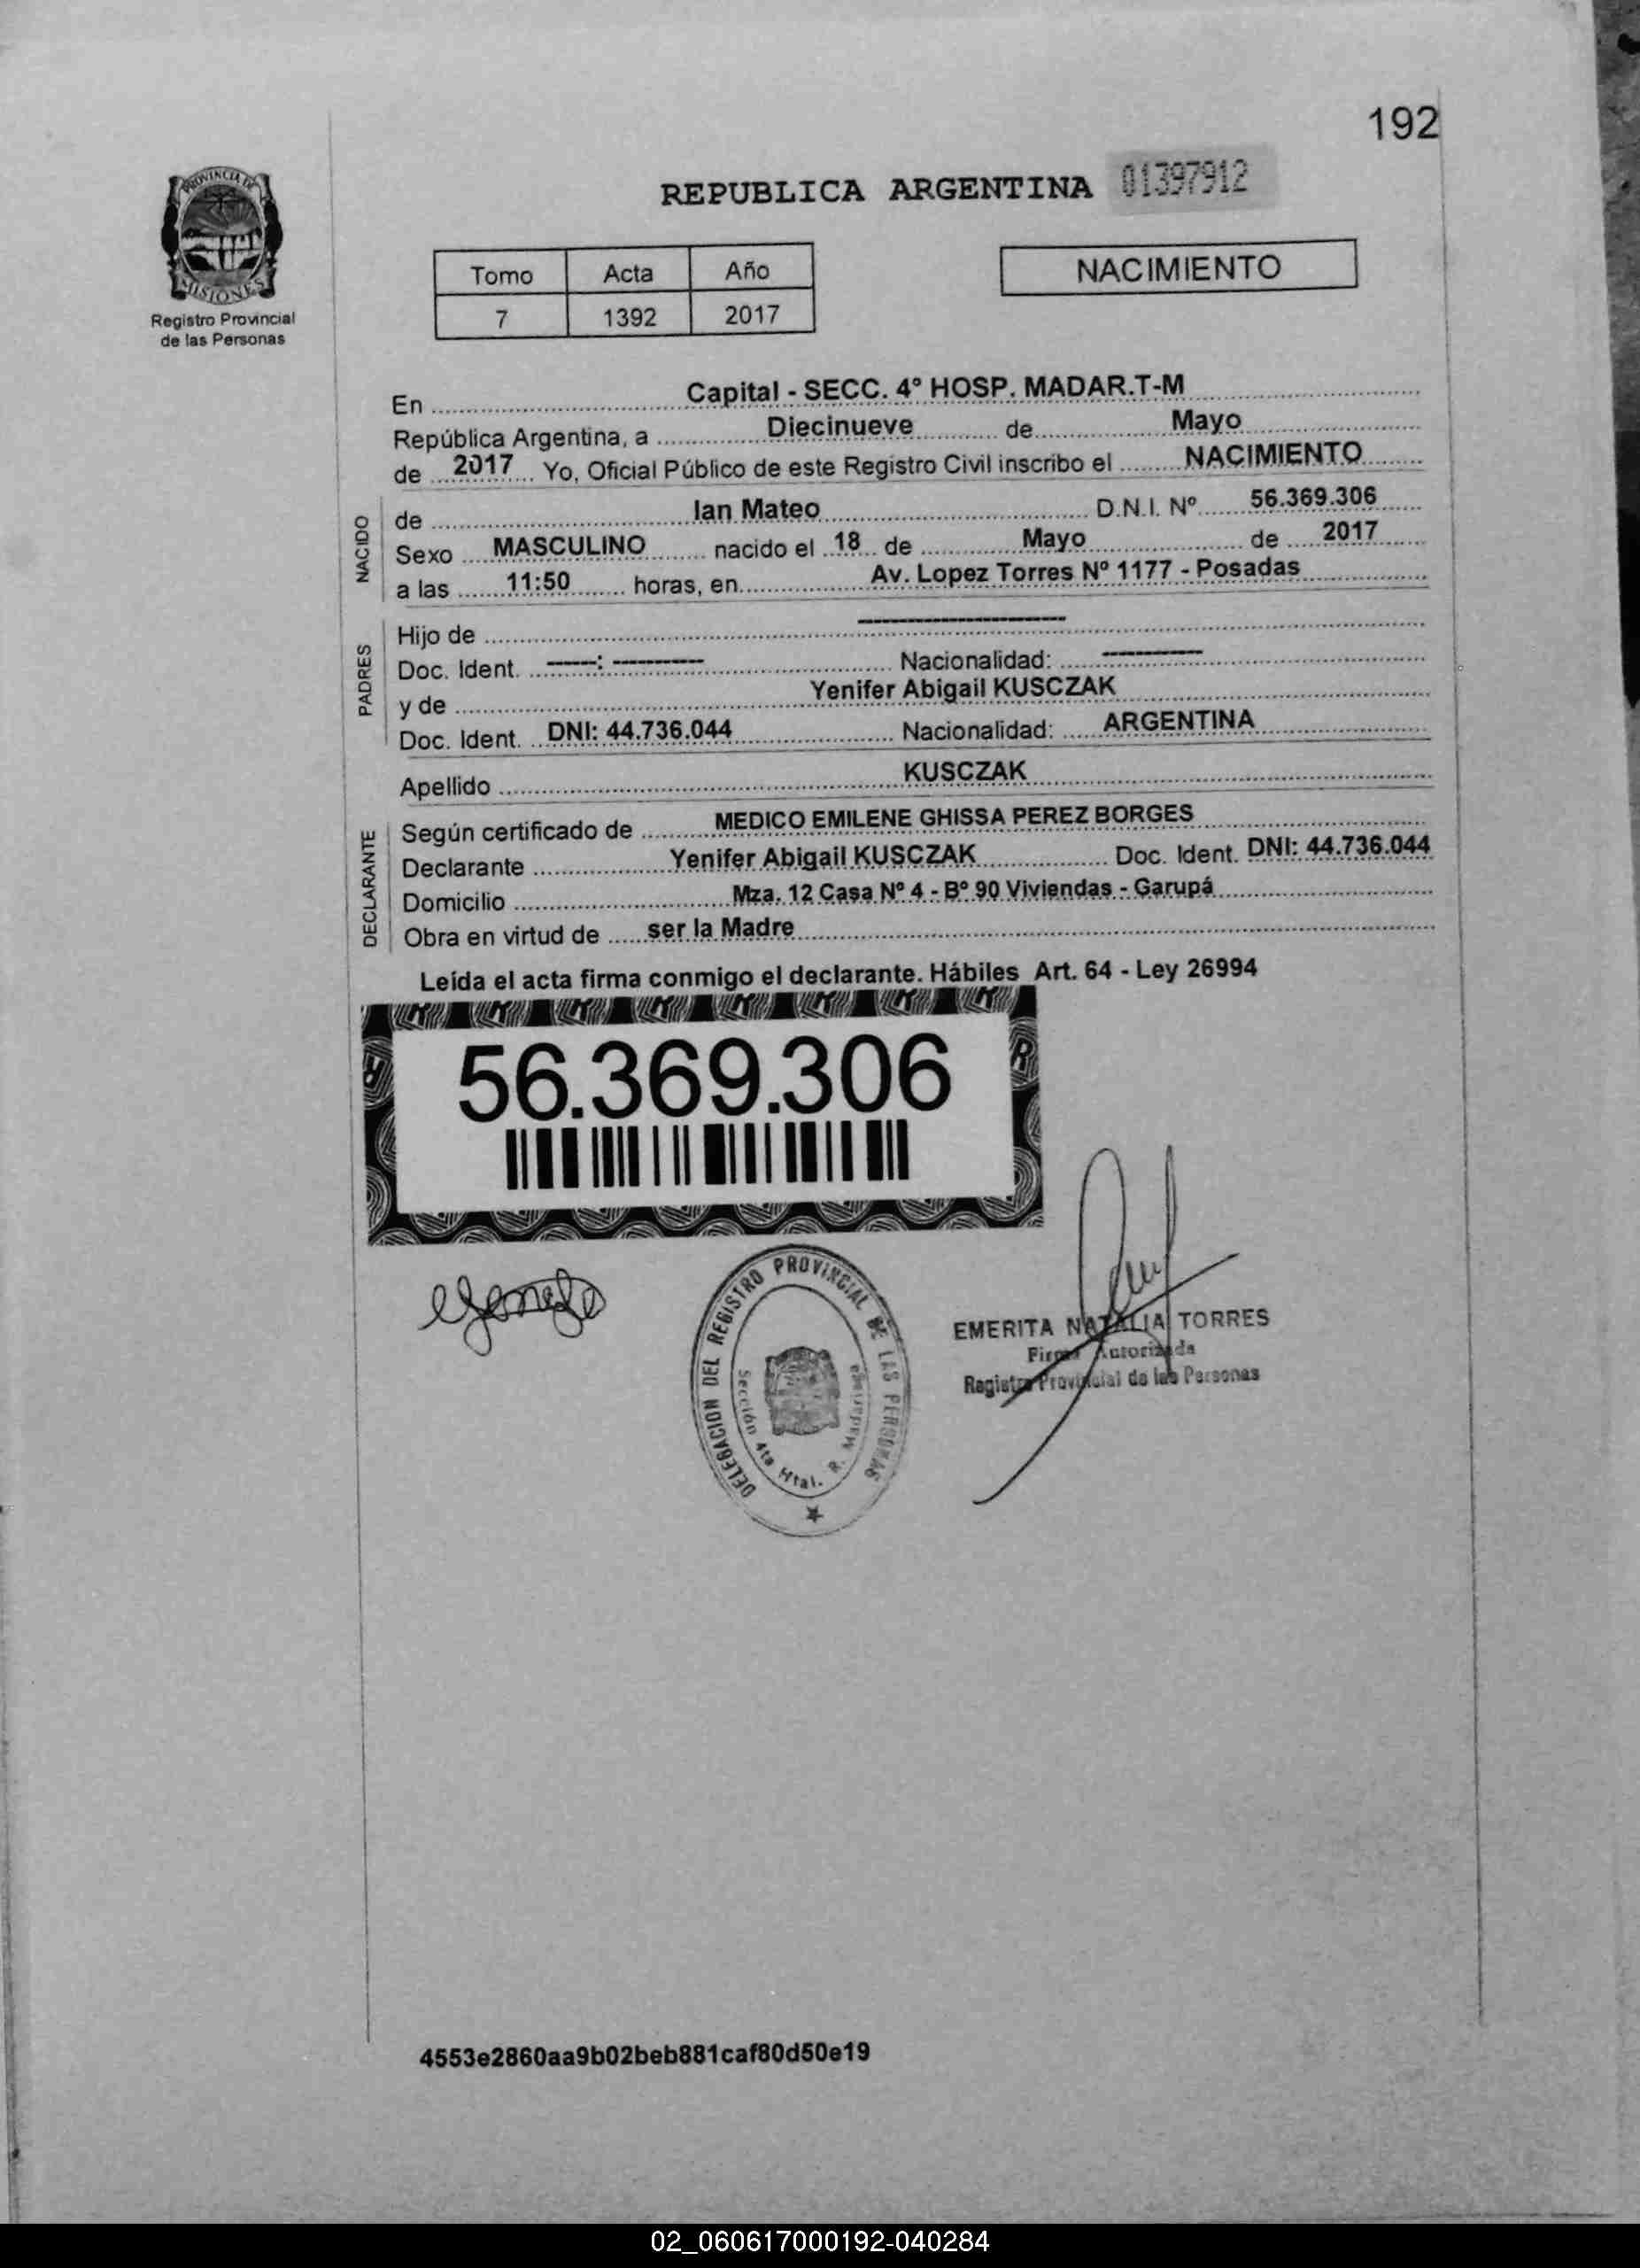 192
PROVINCIA DE
MISIONES
Registro Provincial
de las Personas
REPUBLICA ARGENTINA 01397912
Tomo Acta Año
7 1392 2017
NACIMIENTO
En Capital - SECC. 4° HOSP. MADAR.T-M
República Argentina, a Diecinueve de Mayo
de 2017 Yo, Oficial Público de este Registro Civil inscribo el NACIMIENTO
NACIDO
de Ian Mateo D.N.I. Nº 56.369.306
Sexo MASCULINO nacido el 18 de Mayo de 2017
a las 11:50 horas, en Av. Lopez Torres Nº 1177 - Posadas
PADRES
Hijo de --------------------
Doc. Ident. -----: ---------- Nacionalidad: ----------
y de Yenifer Abigail KUSCZAK
Doc. Ident. DNI: 44.736.044 Nacionalidad: ARGENTINA
Apellido KUSCZAK
DECLARANTE
Según certificado de MEDICO EMILENE GHISSA PEREZ BORGES
Declarante Yenifer Abigail KUSCZAK Doc. Ident. DNI: 44.736.044
Domicilio Mza. 12 Casa Nº 4 - Bº 90 Viviendas - Garupá
Obra en virtud de ser la Madre
Leída el acta firma conmigo el declarante. Hábiles Art. 64 - Ley 26994
56.369.306
DELEGACION DEL REGISTRO PROVINCIAL DE LAS PERSONAS
Sección 4ta Htal. R. Madariaga
EMERITA NATALIA TORRES
Firma Autorizada
Registro Provincial de las Personas
4553e2860aa9b02beb881caf80d50e19
02_060617000192-040284